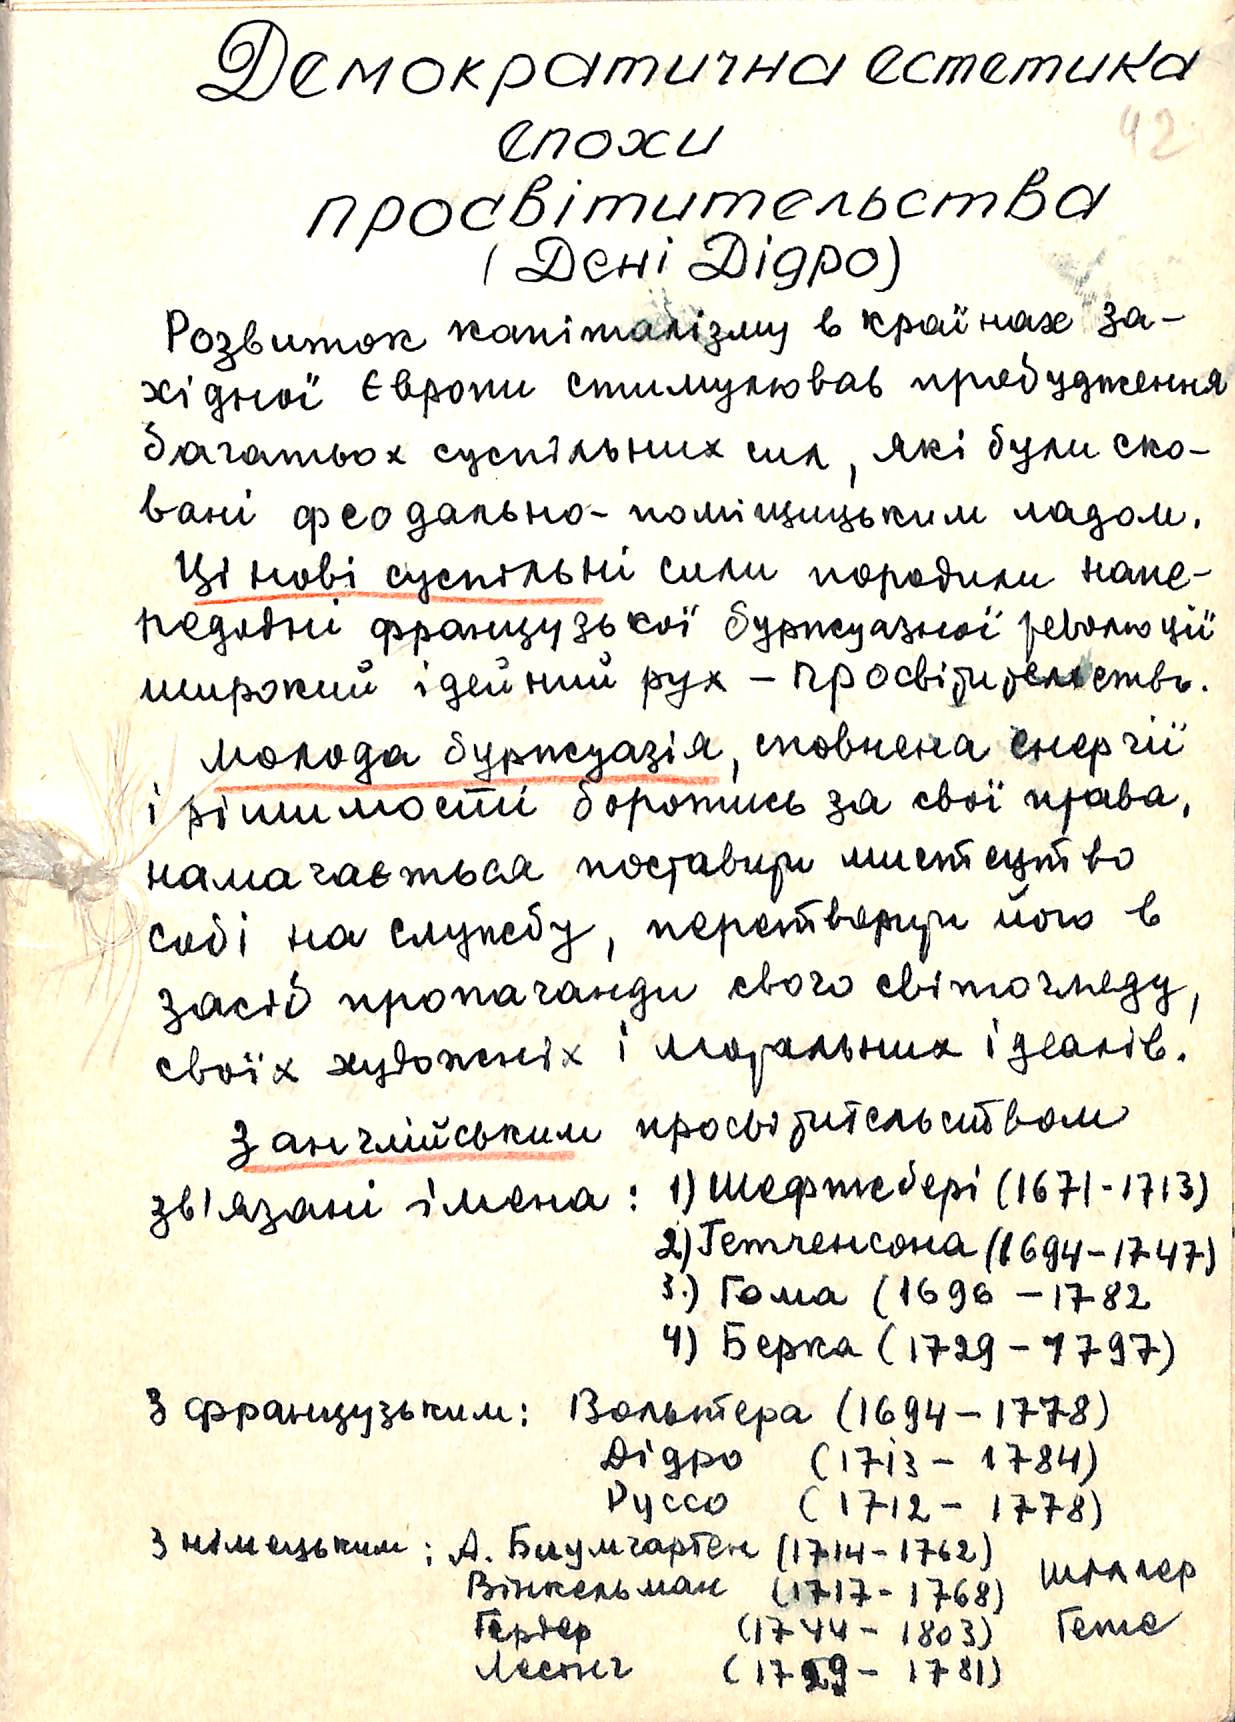 Демократична естетика
епохи
42
просвітительства
(Дені Дідро)
Розвиток капіталізму в країнах за-
хідної Європи стимулював пробудження
багатьох суспільних сил, які були ско-
вані феодально-поміщицьким ладом.
Ці нові суспільні сили породили напе-
редодні французької буржуазної революції
широкий ідейний рух – просвітительство.
Молода буржуазія, сповнена енергії
і рішимості боротись за свої права,
намагається поставити мистецтво
собі на службу, перетворити його в
засіб пропаганди свого світогляду,
своїх художніх і моральних ідеалів.
З англійським просвітительством
зв'язані імена: 1) Шефтсбері (1671-1713)
2) Гетченсона (1694-1747)
3.) Гома (1696 – 1782
4) Берка (1729 – 1797)
З французьким: Вольтера (1694 – 1778)
Дідро (1713 – 1784)
Руссо (1712 – 1778)
З німецьким: А. Баумгартен (1714-1762)
Вінкельман (1717-1768) Шіллер
Гердер (1744 – 1803) Гете
Лессінг (1729 – 1781)